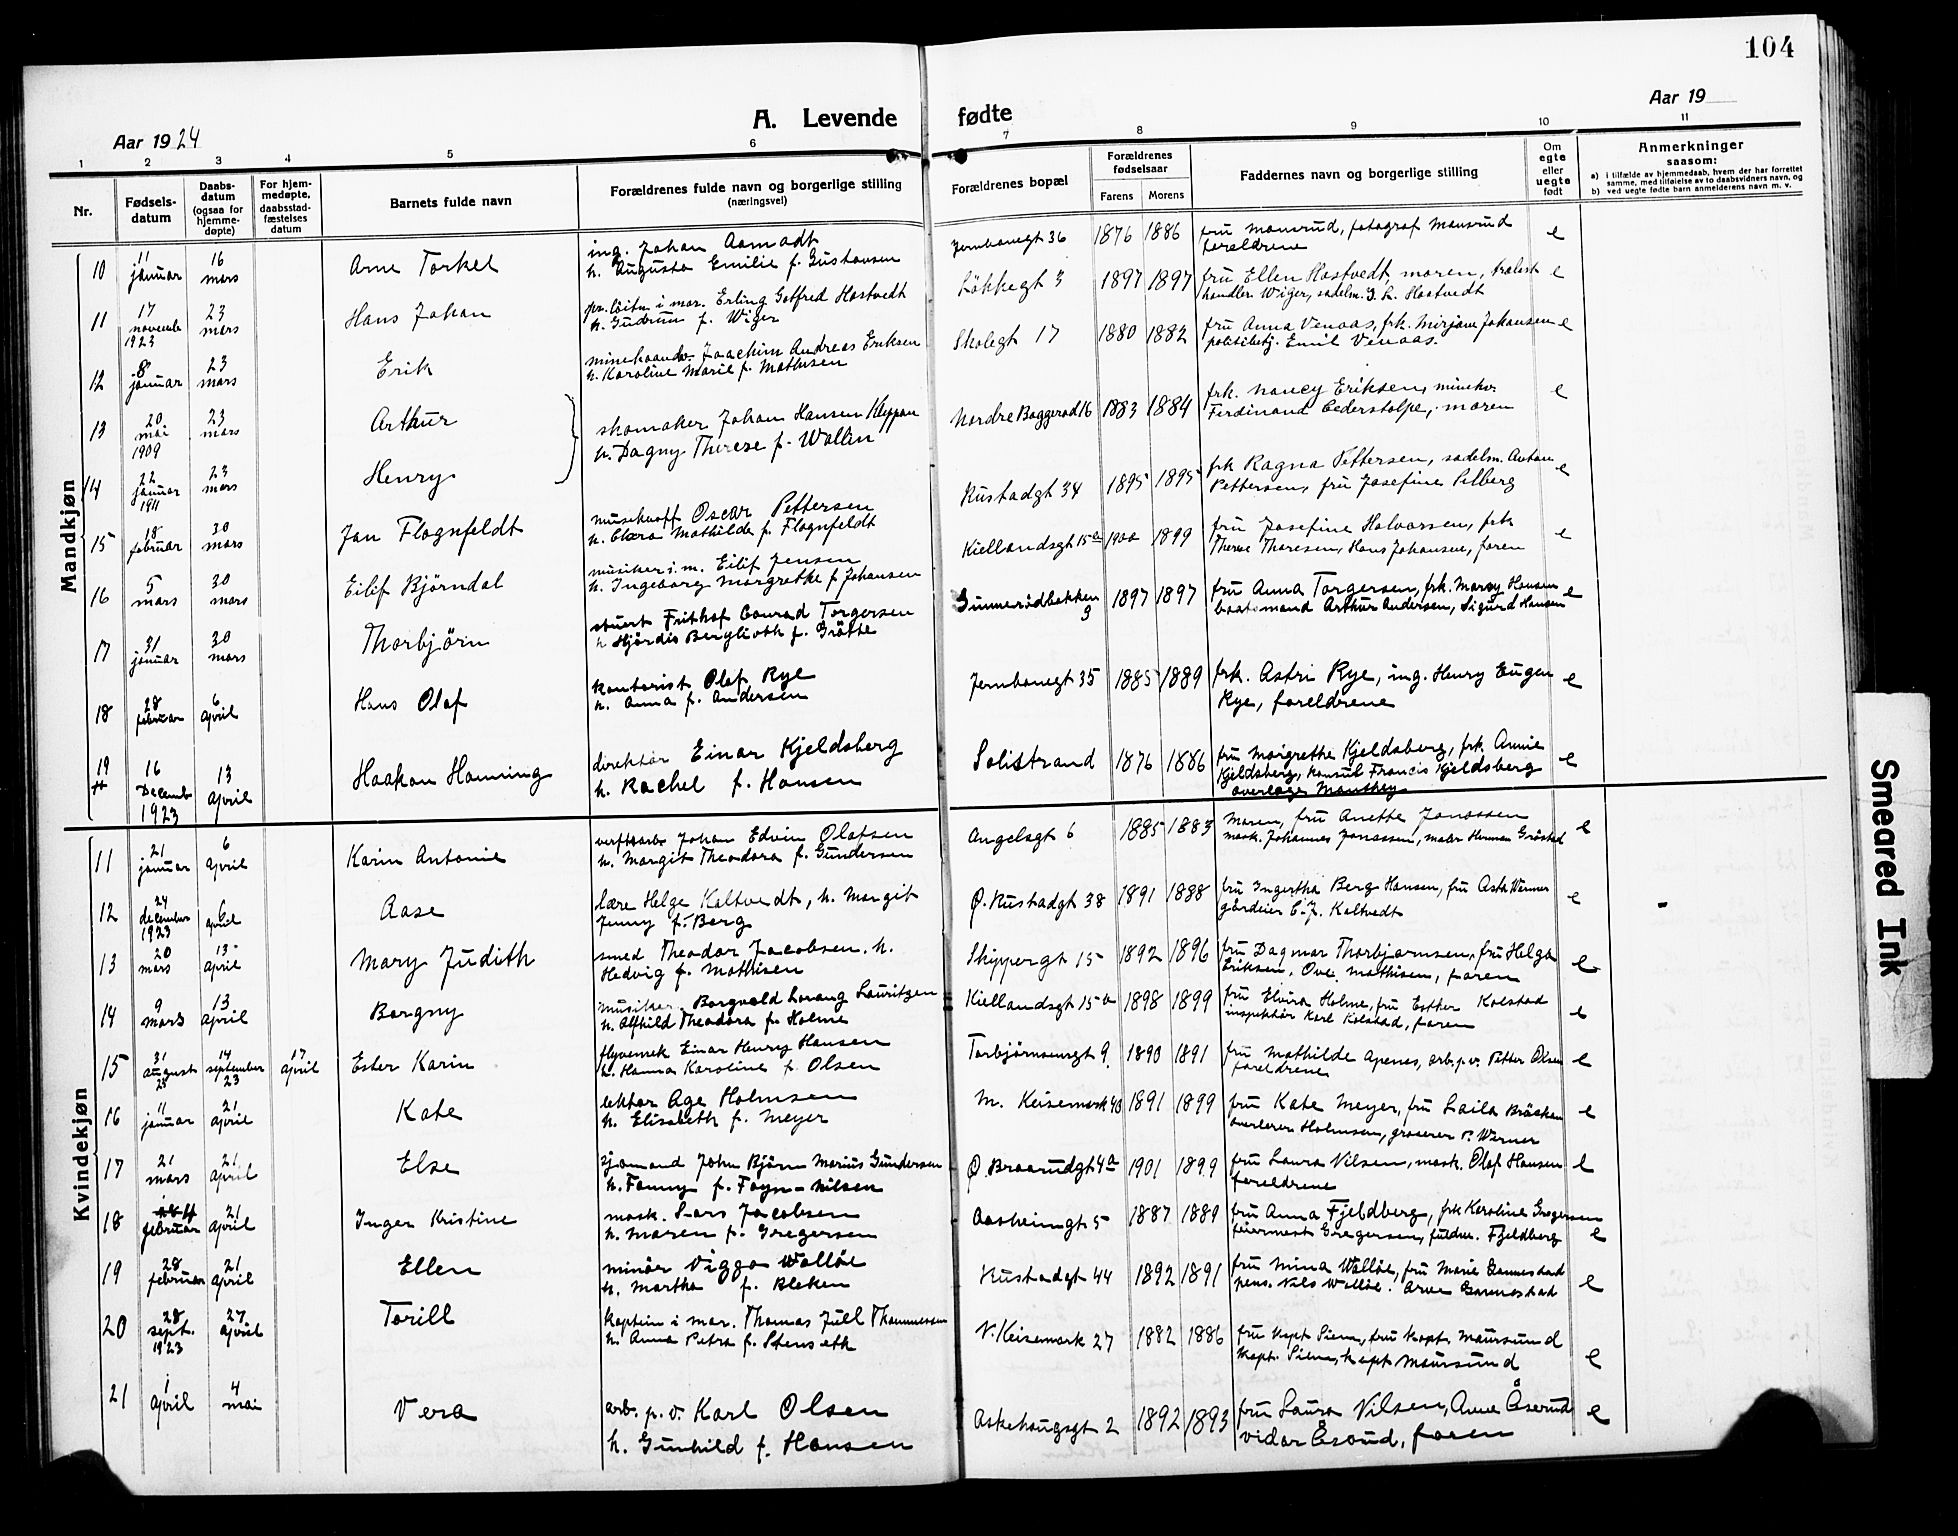 104
Aar 1924
A. Levende fødte
Aar 19
1 2 3 4 5 6 7 8 9 10 11
Nr.
Fødsels-
datum
Daabs-
datum
(ogsaa for
hjemme-
døpte)
For hjem-
medøpte,
daabsstad-
fæstelses
datum
Barnets fulde navn
Forældrenes fulde navn og borgerlige stilling
(næringsvei)
Forældrenes bopæl
Forældrenes
fødselsaar
Farens Morens
Faddernes navn og borgerlige stilling
Om
egte
eller
uegte
født
Anmerkninger
saasom:
a) i tilfælde av hjemmedaab, hvem der har forrettet
samme, med tilføielse av to daabsvidners navn, og
b) ved uegte fødte barn anmelderens navn m. v.
Mandkjøn
10 11 januar 16 mars Arne Torkel
ing. Johan Aamodt
h. Augusta Emilie f. Gustavsen
Jernbanegt 36 1876 1886
fru Mansrud, fotograf Mansrud
foreldrene e
11 17 novemb 1923 23 mars Hans Johan
pr. løitn i mar. Erling Gotfred Hostvedt
h. Gudrun f. Wiger
Løkkegt 3 1897 1897
fru Ellen Hostvedt, moren, tralast
handler Wiger, sadelm. Hostvedt e
12 8 januar 23 mars Erik
minehaandv. Joachim Andreas Eriksen
h. Karoline Marie f. Mathisen
Skolegt 17 1880 1882
fru Anna Venaas, frk. Mirjam Johansen
politibetj. Emil Venaas. e
13 20 mai 1909 23 mars Arthur
skomaker Johan Hansen Kleppan
h. Dagny Therese f. Wallin
Nordre Baggerød 16 1883 1884
frk. Nancy Eriksen, minehv.
Ferdinand Cederstolpe, moren e
14 22 januar 1911 23 mars Henry
15 18 februar 30 mars Jan Flognfeldt
Oscar Pettersen
h. Clara Mathilde f. Flognfeldt
Rustadgt 34 1895 1895
frk Ragna Pettersen, sadelm. Anton
Pettersen, fru Josefine e
16 5 mars 30 mars Eilif Bjørndal
musiker i m. Eilif Jensen
h. Ingeborg Margrethe f. Johansen
Kiellandsgt 15a 1900 1899
fru Josefine Halvorsen, frk
Therese Thoresen, Hans Johansen, faren e
17 31 januar 30 mars Thorbjørn
stuert Frithof Conrad Torgersen
h Hjørdis Berglioth f. Grøtte
Gunnerødbakken 9 1897 1897
fru Anna Torgersen, frk. Margy Hansen
baatsmand Arthur Andersen, Sigurd Hansen e
18 28 februar 6 april Hans Olaf
kontorist Olaf Rye
h. Anna f. Andersen
Jernbanegt 35 1885 1889
frk. Astri Rye, ing. Henry Eugen
Rye, foreldrene e
19 16 Decemb 1923 13 april Haakon Henning
direktør Einar Kjeldsberg
h. Rachel f. Hansen
Solistrand 1876 1886
fru Margrethe Kjeldsberg, frk. Annie
Kjeldsberg, konsul Francis Kjeldsberg
overlæge Manthey e
Kvindekjøn
11 21 januar 6 april Karin Antonie
verftsarb Johan Edvin Olafsen
h. Margit Theodora f. Gundersen
Angelsgt 6 1885 1883
Moren, fru Anetta Jonassen
mask. Johannes Jonassen, maler Herman Grøstad e
12 24 december 1923 6 april Aase
lære Helge Kaltvedt, h. Margit
Jenny f. Berg
Ø. Rustadgt 38 1891 1888
fru Ingertha Berg Hansen, fru Asta Werner
gårdeier C. J. Kaltvedt e
13 20 mars 13 april Mary Judith
smed Theodor Jacobsen, h.
Hedvig f. Mathisen
Skippergt 15 1892 1896
fru Dagmar Thorbjørnsen, fru Helga
Eriksen, Ove Mathisen, faren e
14 9 mars 13 april Borgny
musiker Borgvald Lorang Lauritzen
h. Alfhild Theodora f. Holme
Kiellandsgt 15a 1898 1899
fru Elvira Holme, fru Esther Kolstad
inspektør Karl Kolstad, faren e
15 31 august 23 14 september 23 17 april Ester Karin
flyvemek Einar Henry Hansen
h. Hanna Karoline f. Olsen
Torbjørnsensgt 9 1890 1891
fru Mathilde Apenes, arb. p. v. Petter Olsen
foreldrene e
16 11 januar 21 april Kate
lektor Age Holmsen
h. Elisabeth f. Meyer
M. Keisemark 40 1891 1899
fru Kate Meyer, fru Laila Bröcken
overlærer Holmsen, groserer P. Werner e
17 21 mars 21 april Else
sjømand John Bjørn Marius Gundersen
h. Fanny f. Foyn-Nilsen
Ø. Braarudgt 4a 1901 1899
fru Laura Nilsen, mask. Olaf Hansen
foreldrene e
18 februar 21 april Inger Kristine
mask. Lars Jacobsen
h. Maren f. Gregersen
Aasheimgt 5 1887 1889
fru Anna Fjeldberg, frk Karoline Gregersen
feiermest Gregersen, Fjeldberg e
19 28 februar 21 april Ellen
minør Viggo Walløe
h. Martha f. Bleken
Rustadgt 44 1892 1891
fru Mina Walløe, fru Marie Gannestad
pens. Nils Walløe. Arne Gannestad e
20 28 sept. 1923 27 april Torill
Kaptein i mar. Thomas Juell Thommessen
h. Anna Petra f. Stenseth
N. Keisemark 27 1882 1886
fru kapt Siem, fru kapt. Maursund
kapt. Siem, kapt Maursund e
21 1 april 4 mai Vera
arb. p. v. Karl Olsen
h. Gunhild f. Hansen
Askehaugsgt 2 1892 1893
fru Laura Nilsen, Anne Åserud
Vidar Åsrud, faren e
Smeared Ink